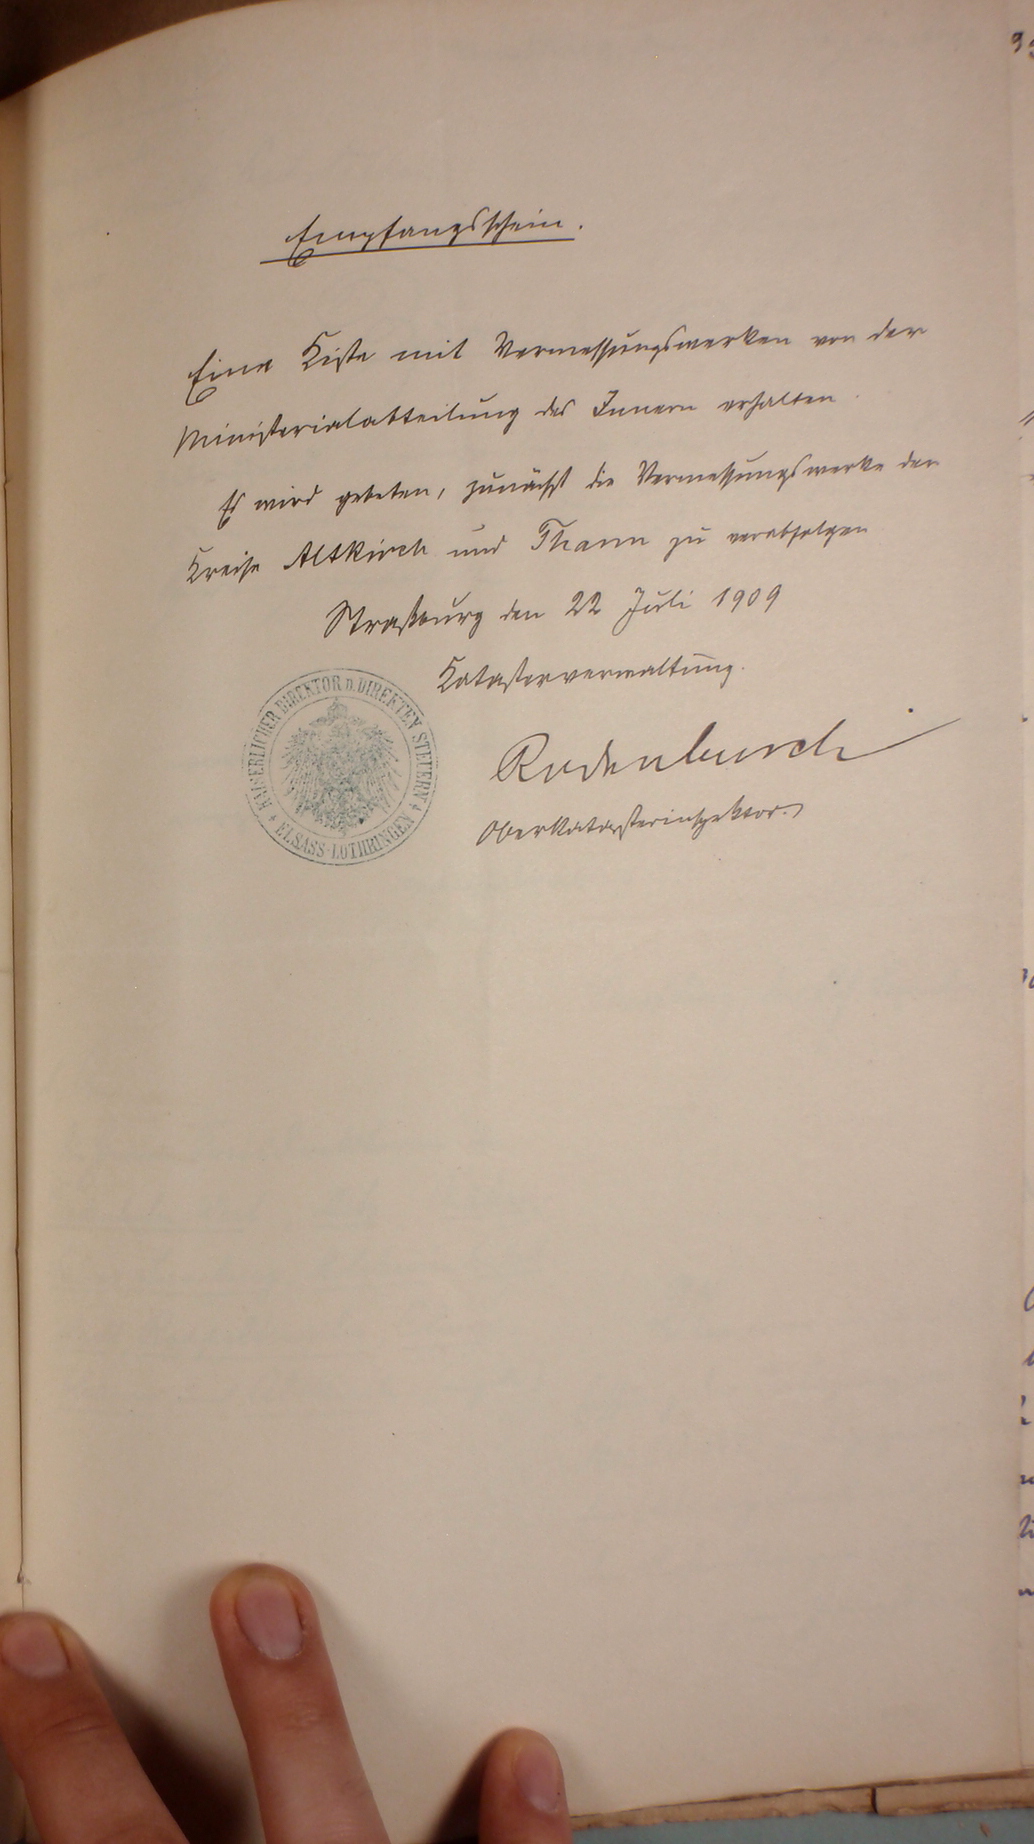 Empfangsschein.
Eine Kiste mit Vermessungswerken von der
Ministerialabteilung des Innern erhalten.
Es wird gebeten, zunächst die Vermessungswerke der
Kreise Altkirch und Thann zu verabfolgen
Straßburg den 22 Juli 1909
Katasterverwaltung.
Rodenbusch
Oberkatasterinspektor.
KAISERLICHER DIREKTOR D. DIREKTEN STEUERN
ELSASS-LOTHRINGEN